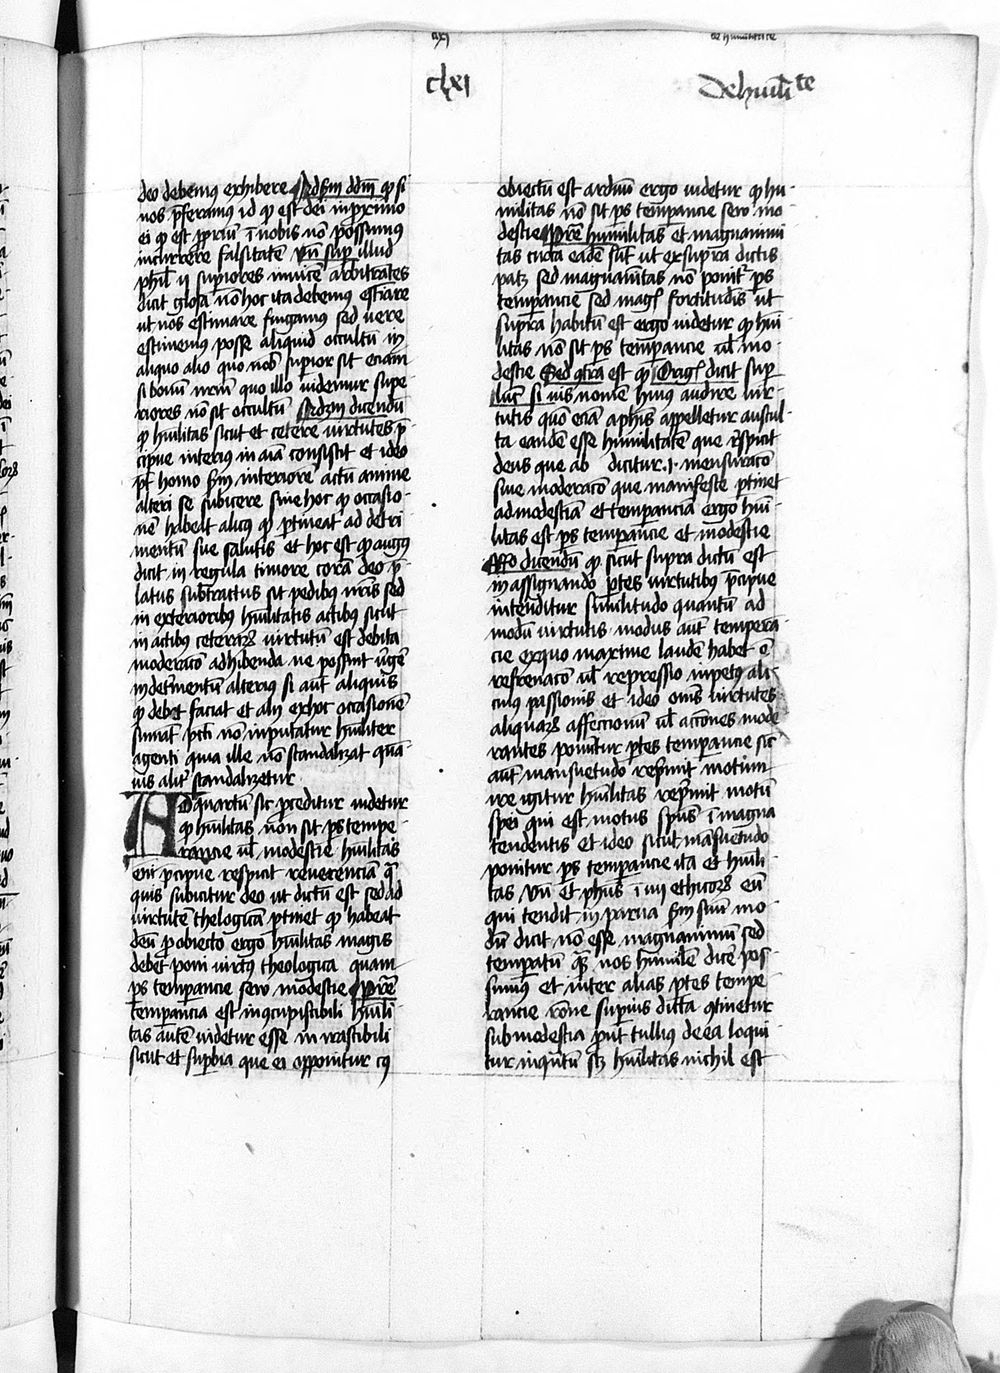 clxi
De huili te
deo debemus exhibere Ad scdm ddm qp si
nos pͬferamus id qp est dei in proximo
ei qp est propriū ī nobis nō possumus
incurrere falsitatē Vn̄ sup illud
phil ij supiores inuicē arbitrātes
dicit glosa nō hoc ita debemus estīare
ut nos estimare fingamus sed uere
estimemus posse aliquid occultū in
aliquo alio quo nob supior sit eciam
si bonū nrm̄ quo illo uidemur supe
riores nō sit occultū dicendū
qp hūilitas sicut et cetere uirtutes p̄
cipue interius in aīa consistit et ideo
pt̄ homo scdm interiorē actū anime
alteri se subicere sine hoc qp occasio
nē habeat aliqͥs qp ptineat ad detri
mentū sue salutis et hoc est qp augus
dicit in regula timore corā deo p̄
latus substractus sit pedibus ur̄is sed
in exterioribus hūilitatis actibus sicut
in actibus ceteraꝝ uirtutū est debita
moderacō adhibenda ne possint uͬgē
in detͬmentū alterius si aut̄ aliquis
qp debet faciat et alij ex hoc occasionē
sumāt pcti nō inputatur hūiliter
agenti quia ille nō scandalizat quā
uis alit̄ scandalizetur
Ad quartū sic proceditur uidetur
qp hūilitas non sit ps tempe
rancie ul̄ modestie hūilitas
enī pͬcipue respicit reuerenciā qͣ
quis subicitur deo ut dictū est sed ad
uirtutē theologicā ptinet qp habeat
deū pro obiecto ergo hūilitas magis
debet poni uirtus theologica quam
ps temperancie seu modestie Pre͂
temperancia est in concupiscibili hūili
tas autē uidetur esse in irascibili
sicut et supbia que ei opponitur cuͥ
obiectū est arduū ergo uidetur qp hu
militas nō sit ps temperancie seu mo
destie Pre͂ humilitas et magnanimi
tas circa eadē sūt ut ex supra dictis
patꝫ sed magnanitas nō ponit̄ ps
temperancie sed magꝭ fortitudīs ut
supra habitū est ergo uidetur qp hūi
litas nō sit ps temperancie ul̄ mo
destie Sed cͦtra est qp Orageꝭ dicit sup
luc si uis nomē huius audire uir
tutis quō eciā a phis appelletur auscul
ta eandē esse humilitatē que r̄spicit
deus que ab dicitur .i. mensuracō
siue moderacō que manifeste ptinet
ad modestiā et temperanciā ergo hūi
litas est ps temperancie et modestie
Rͦ dicendū qp sicut supra dictū est
in assignando ptes uirtutibus pͬcipue
intenditur similitudo quantū ad
modū uirtutis modus aut̄ tempera
cie ex quo maxime laudē habet ē
refrenacō ul̄ repressio inpetus ali
cuius passionis et ideo oms uirtutes
aliquaꝝ affectionū ul̄ acciones mode
rantes ponūtur ptes temperancie sic̄
aut̄ mansuetudo rep̄mit motum
ire igitur hūilitas rep̄mit motū
spei qui est motus spūs ī magna
tendentis et ideo sicut māsuetudo
ponitur ps temperancie ita et hūili
tas Vn̄ et phus ī iiij ethicoꝝ eū
qui tendit in parua scdm suū mo
dū dicit nō esse magnanimū sed
temperatū quē nos humilē dicē pos
sumus et inter alias ptes tempe
rancie rōne superius dicta cͦtinetur
sub modestia put tullius de ea loqui
tur inqͣntū scꝫ hūilitas nichil est